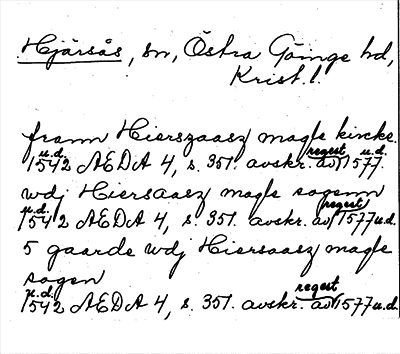 Hjärsås, sn, Östra Göinge hd,
Krist. l.
framn Hierszaasz magle kircke.
u.d. 1542 AEDA 4, s. 351. avskr. av regest 1577 u.d.
wdj Hiersaasz magle sogenn
u.d. 1542 AEDA 4, s. 351. avskr. av regest 1577 u.d.
5 gaarde wdj Hiersaasz magle
sogen
u.d. 1542 AEDA 4, s. 351. avskr. av regest 1577 u.d.